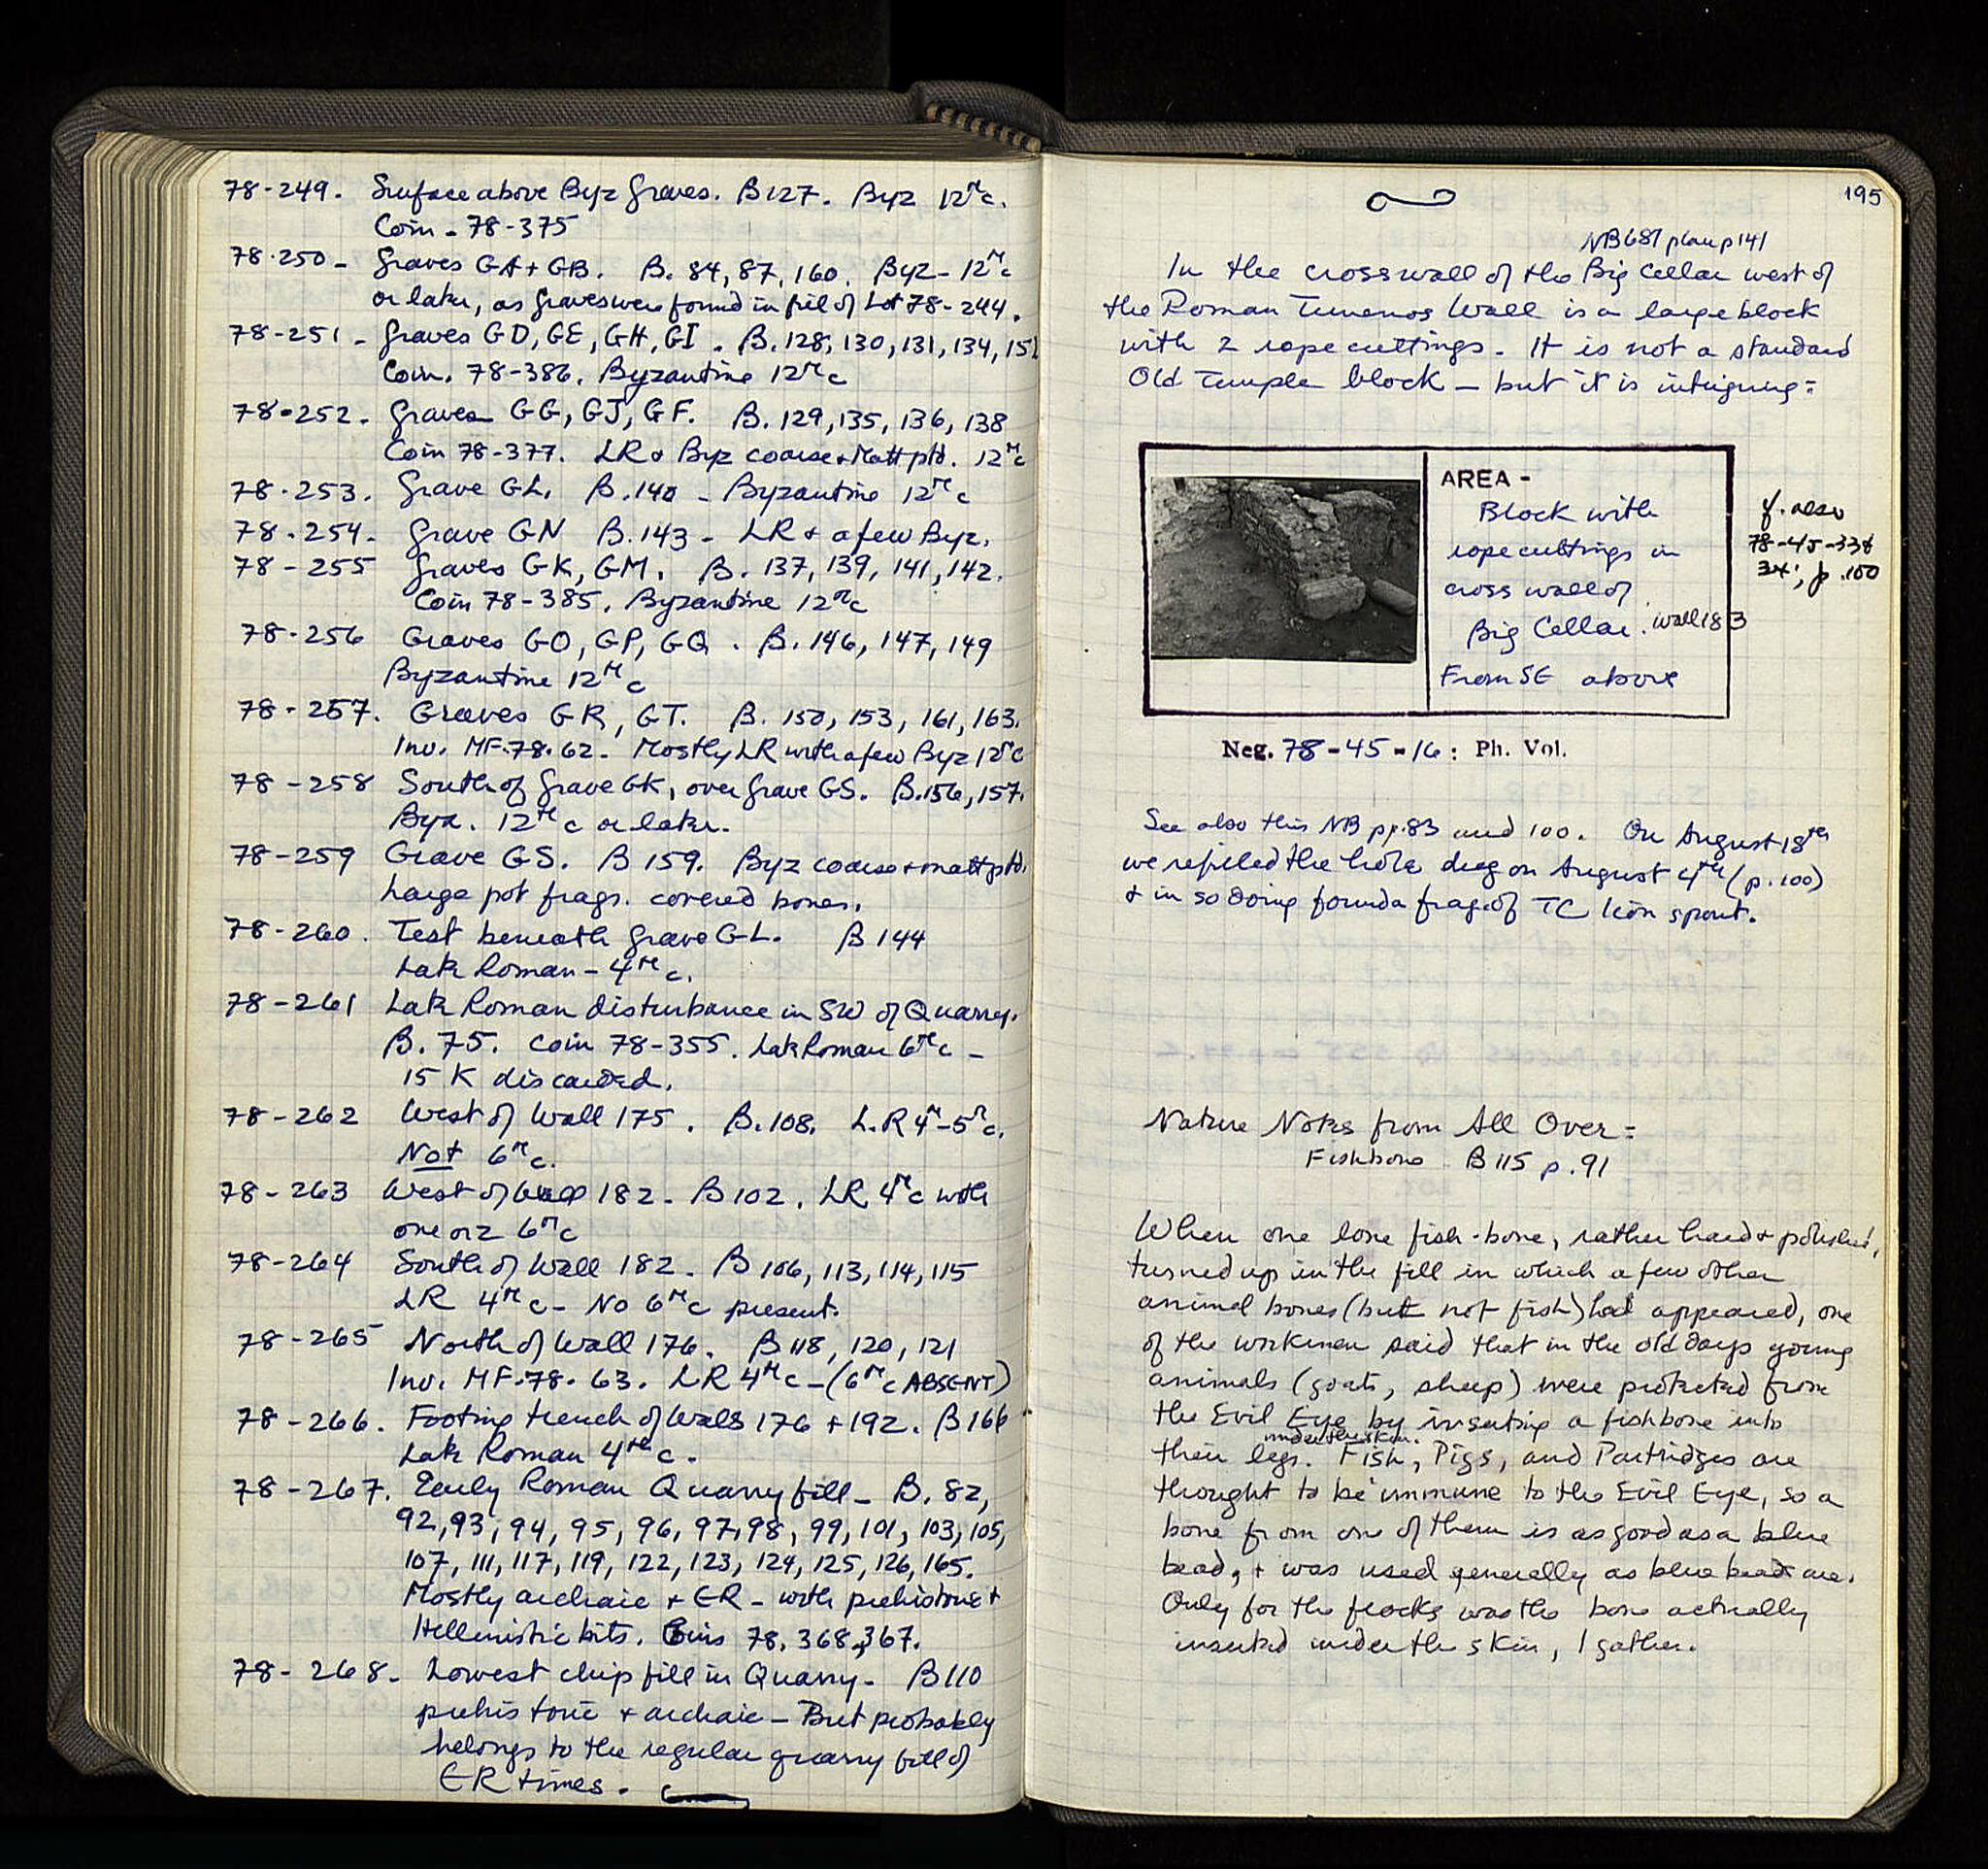 78-249. Surface above Byz graves. B127. Byz 12th c.
Coin - 78-375
78-250 - Graves GA + GB. B. 84, 87, 160. Byz - 12th c
or later, as graves were found in fill of Lot 78-244.
78-251 - Graves GD, GE, GH, GI. B. 128, 130, 131, 134, 151
Coin. 78-386. Byzantine 12th c
78-252 - Graves GG, GJ, GF. B. 129, 135, 136, 138
Coin 78-377. LR + Byz coarse + Matt ptd. 12th c
78-253. Grave GL. B. 140 - Byzantine 12th c
78-254 - Grave GN B. 143 - LR + a few Byz.
78-255 Graves GK, GM. B. 137, 139, 141, 142.
Coin 78-385. Byzantine 12th c
78-256 Graves GO, GP, GQ. B. 146, 147, 149
Byzantine 12th c
78-257. Graves GR, GT. B. 150, 153, 161, 163.
Inv. MF-78-62 - Mostly LR with a few Byz 12th c
78-258 South of Grave GK, over grave GS. B. 156, 157.
Byz. 12th c or later.
78-259 Grave GS. B 159. Byz coarse + matt ptd.
Large pot frags. covered bones.
78-260. Test beneath grave GL. B 144
Late Roman - 4th c.
78-261 Late Roman disturbance in SW of Quarry.
B. 75. Coin 78-355. Late Roman 6th c -
15 K discarded.
78-262 West of Wall 175. B. 108. L.R 4th-5th c.
Not 6th c.
78-263 West of Wall 182 - B 102. LR 4th c with
one or 2 6th c
78-264 South of Wall 182 - B 106, 113, 114, 115
LR 4th c - No 6th c present.
78-265 North of Wall 176. B 118, 120, 121
Inv. MF-78-63. LR 4th c - (6th c ABSENT)
78-266. Footing trench of Walls 176 + 192. B 166
Late Roman 4th c.
78-267. Early Roman Quarry fill - B. 82,
92, 93, 94, 95, 96, 97, 98, 99, 101, 103, 105,
107, 111, 117, 119, 122, 123, 124, 125, 126, 165.
Mostly archaic + ER - with prehistoric +
Hellenistic bits. Coins 78. 368, 367.
78-268 - Lowest chip fill in Quarry - B110
prehistoric + archaic - But probably
belongs to the regular quarry fill of
ER times.
195
NB 681 plan p 141
In the crosswall of the Big Cellar west of
the Roman Temenos Wall is a large block
with 2 rope cuttings. It is not a standard
Old Temple block - but it is intriguing:
AREA -
Block with
rope cuttings in
cross wall of
Big Cellar. wall 183
From SE above
cf. also
78-45-33 &
34; p. 100
Neg. 78-45-16: Ph. Vol.
See also this NB pp. 83 and 100. On August 18th
we refilled the hole dug on August 4th (p. 100)
+ in so doing found a frag. of TC lion spout.
Nature Notes from All Over:
Fishbone B 115 p. 91
When one lone fish-bone, rather hard + polished,
turned up in the fill in which a few other
animal bones (but not fish) had appeared, one
of the workmen said that in the old days young
animals (goats, sheep) were protected from
the Evil Eye by inserting a fishbone into
under the skin.
their legs. Fish, Pigs, and Partridges are
thought to be immune to the Evil Eye, so a
bone from one of them is as good as a blue
bead, + was used generally as blue beads are.
Only for the flocks was the bone actually
inserted under the skin, I gather.